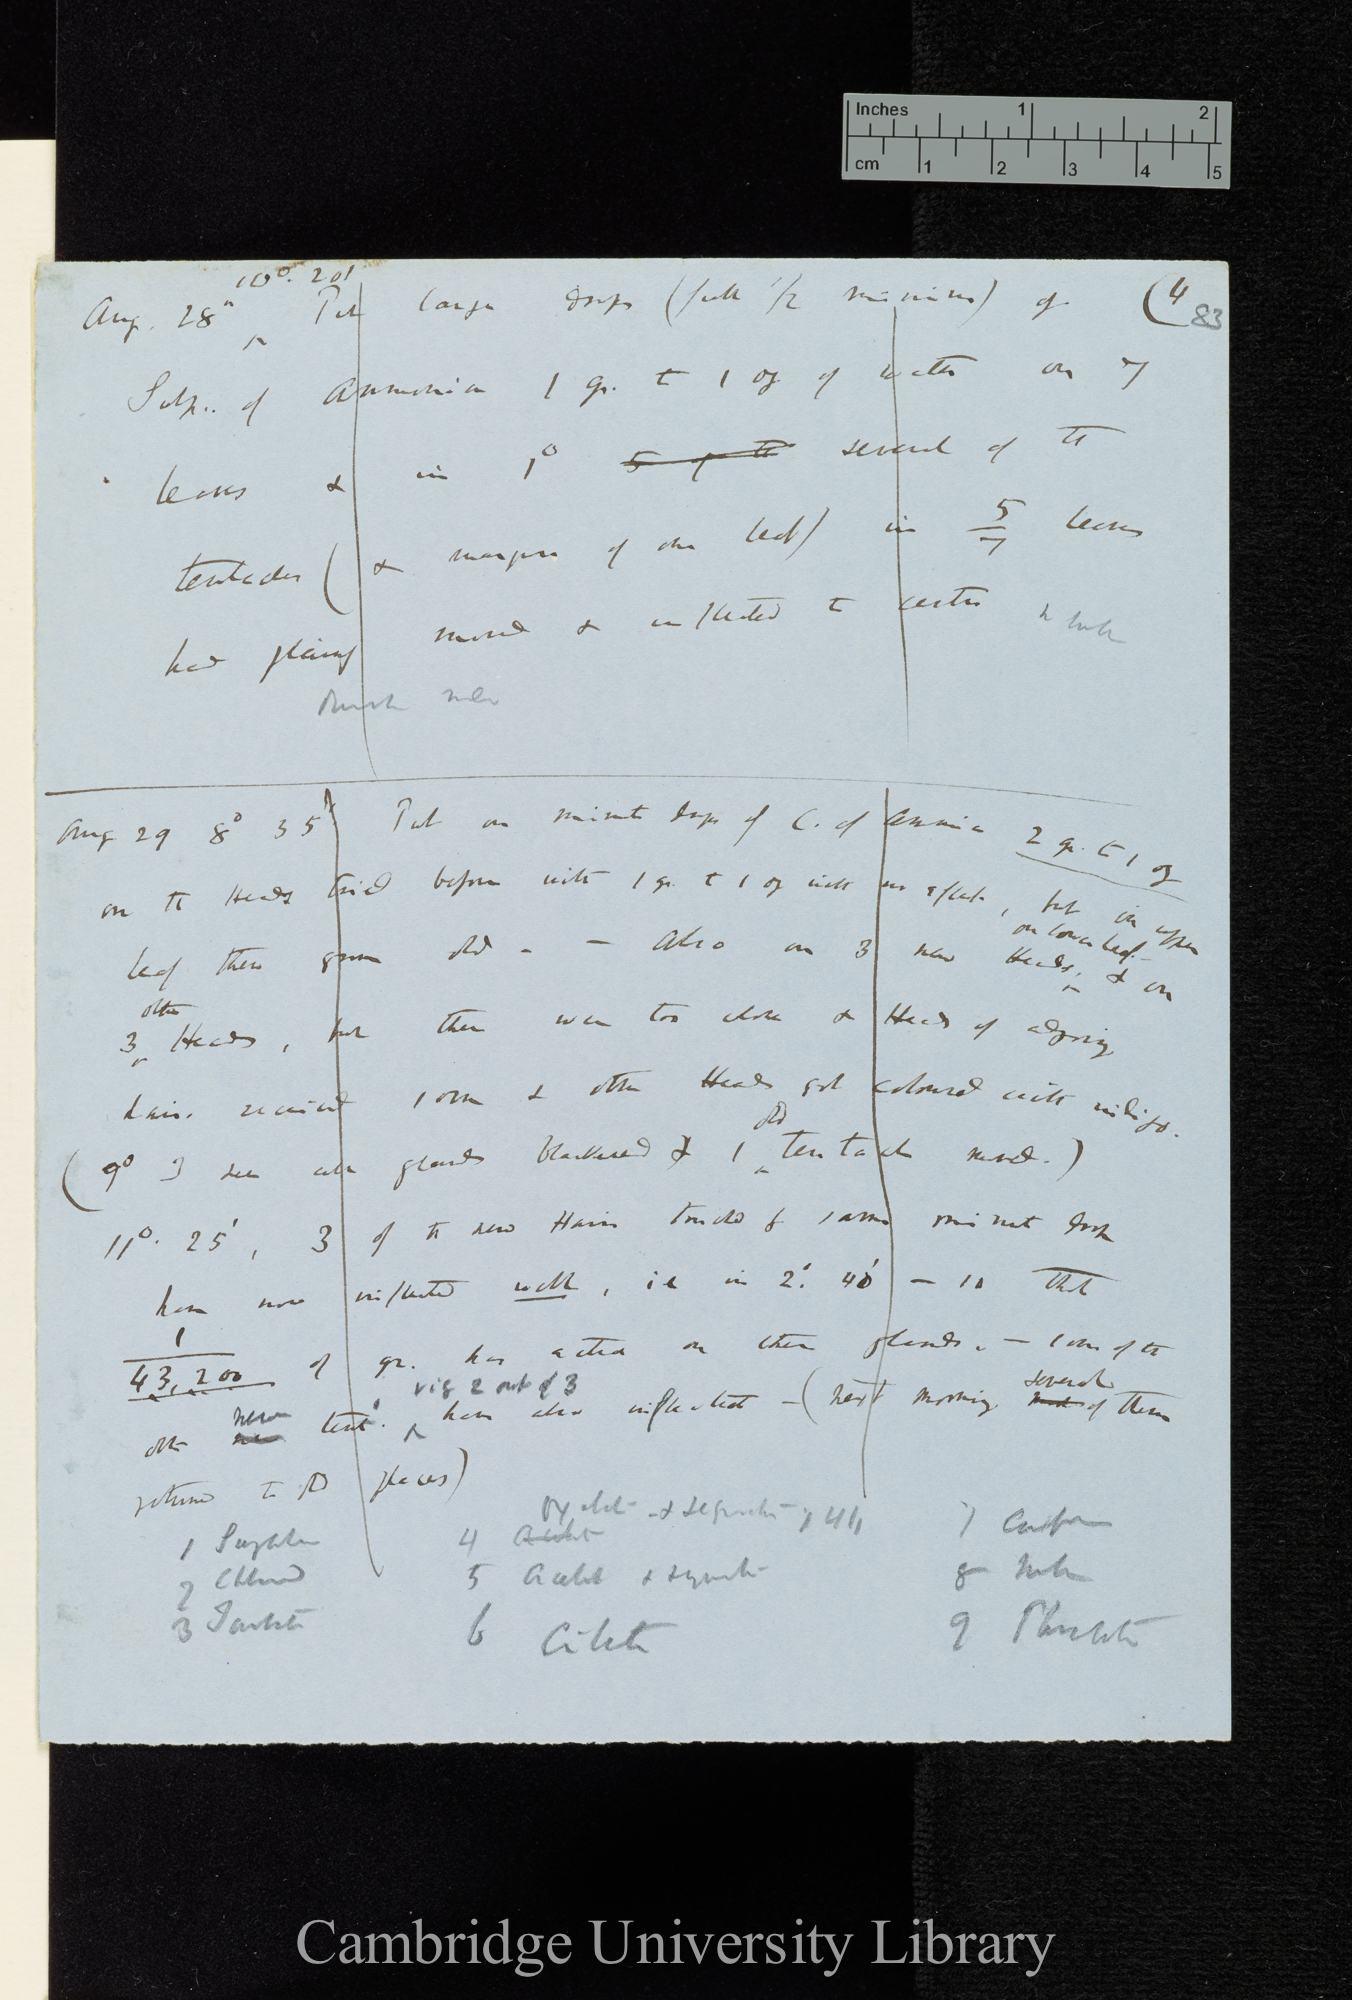 Inches 1 2
cm 1 2 3 4 5
10°. 20'
Aug. 28" Put large drops (full 1/2 minims) of (4
83
Sulp.. of Ammonia 1 gr. to 1 oz of water on 7
leaves & in 1° 5 of the several of the
tentacles (& margin of one leaf) in 5/7 leaves
had plainly moved & inflected to centre
Aug 29 8° 35' Put on minute drops of C. of Ammonia 2 gr. to 1 oz
on the Heads tried before with 1 gr. to 1 oz with no effect, but in upper
on lower leaf.
leaf then grown old - — Also on 3 new Heads, & on
other
3 Heads, but these were too close & Heads of adjoining
hairs received some & other Heads got coloured with indigo.
old
(9° I see all glands blackened & 1 tentacle moved.)
11°. 25', 3 of the new Hairs touched by same minute drop
have now inflected well, ie in 2°. 40' — so that
1/43,200 of gr. has acted on these glands. — some of the
viz 2 out of 3
several
new
other tent'. have also inflected — (next morning most of them
returned to old places)
Oxalate
4 Acetate
7
2 Chloride
5 Acetate
8
3
6 Citrate
9 Phosphate
Cambridge University Library